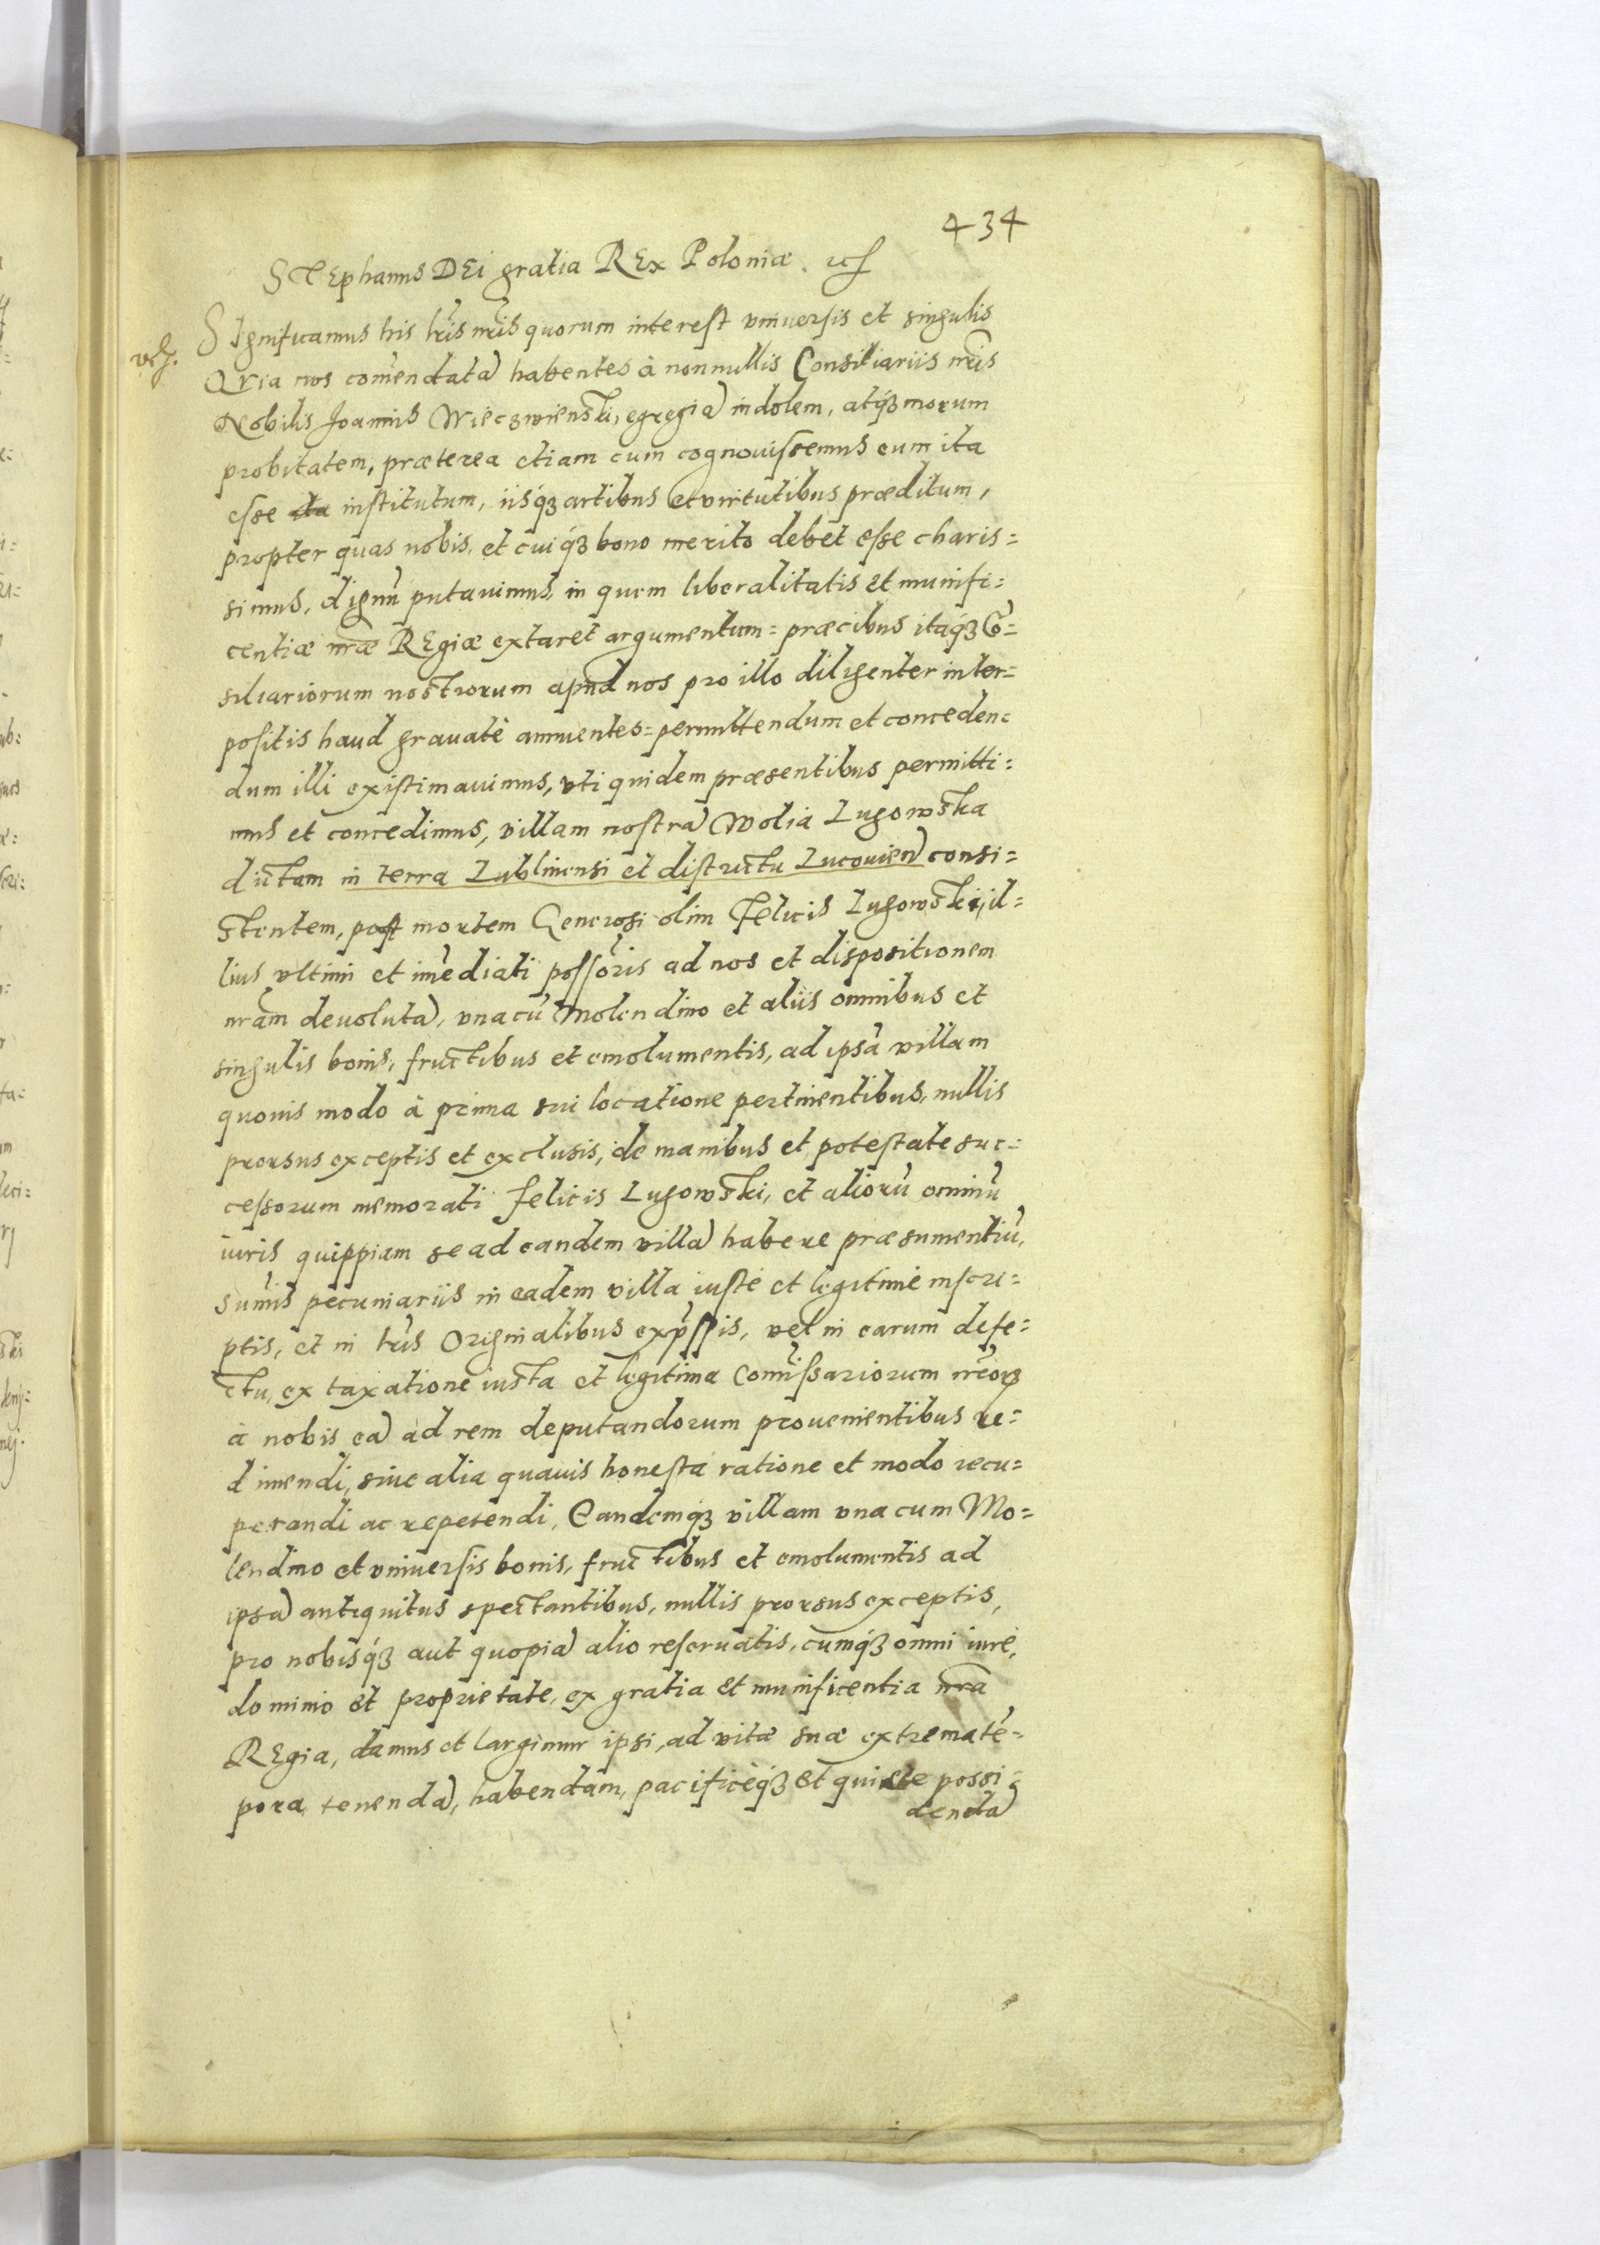 434
STEphanus DEi gratia REx Poloniæ. etc
Significamus his lr̃is nr̃is quorum interest vniuersis et singulis
Quia nos com̃endatã habentes à nonnullis Consiliariis nr̃is
Nobilis Joannis Wieczwienski, egregiã indolem, atq́ꝫ morum
probitatem, præterea etiam cum cognouissemus eum ita
esse ita institutum, iisq́ꝫ artibus et virtutibus præditum,
propter quas nobis, et cuiq́ꝫ bono merito debet esse charis=
simus, dignũ putauimus, in quem liberalitatis et munifi=
centiæ nr̃æ REgiæ extaret argumentum= præcibus itaq́ꝫ Cõ=
siliariorum nostrorum apud nos pro illo diligenter inter=
positis haud grauatè annuentes= permittendum et conceden=
dum illi existimauimus, vti quidem præsentibus permitti=
mus et concedimus, villam nostrã Wolia Lugowska
dictam in terra Lublinensi et districtu Lucouien̄ consi=
stentem, post mortem Generosi olim Felicis Lugowski, il=
lius vltimi et im̃ediati poss̃oris ad nos et dispositionem
nr̃am deuolutã, vnacũ Molendino et aliis omnibus et
singulis bonis, fructibus et emolumentis, ad ipsã villam
quouis modo à prima sui locatione pertinentibus, nullis
prorsus exceptis et exclusis, de manibus et potestate suc=
cessorum memorati Felicis Lugowski, et aliorũ omniũ
iuris quippiam se ad eandem villã habere præsumentiũ,
sum̃is pecuniariis in eadem villa iustè et legitimè inscri=
ptis, et in lr̃is Originalibus exp̃ssis, vel in earum defe=
ctu, ex taxatione iusta et legitima Com̃issariorum nr̃orꝫ
à nobis eã ad rem deputandorum prouenientibus re=
dimendi, siue alia quauis honesta ratione et modo recu=
perandi ac repetendi, Eandemq́ꝫ villam vna cum Mo=
lendino et vniuersis bonis, fructibus et emolumentis ad
ipsã antiquitus spectantibus, nullis prorsus exceptis,
pro nobisq́ꝫ aut quopiã alio reseruatis, cumq́ꝫ omni iure,
dominio et proprietate, ex gratia et munificentia nr̃a
REgia, damus et largimur ipsi, ad vitæ suæ extrema tẽ=
pora, tenendã, habendam, pacificèq́ꝫ et quiete possi=
dendã